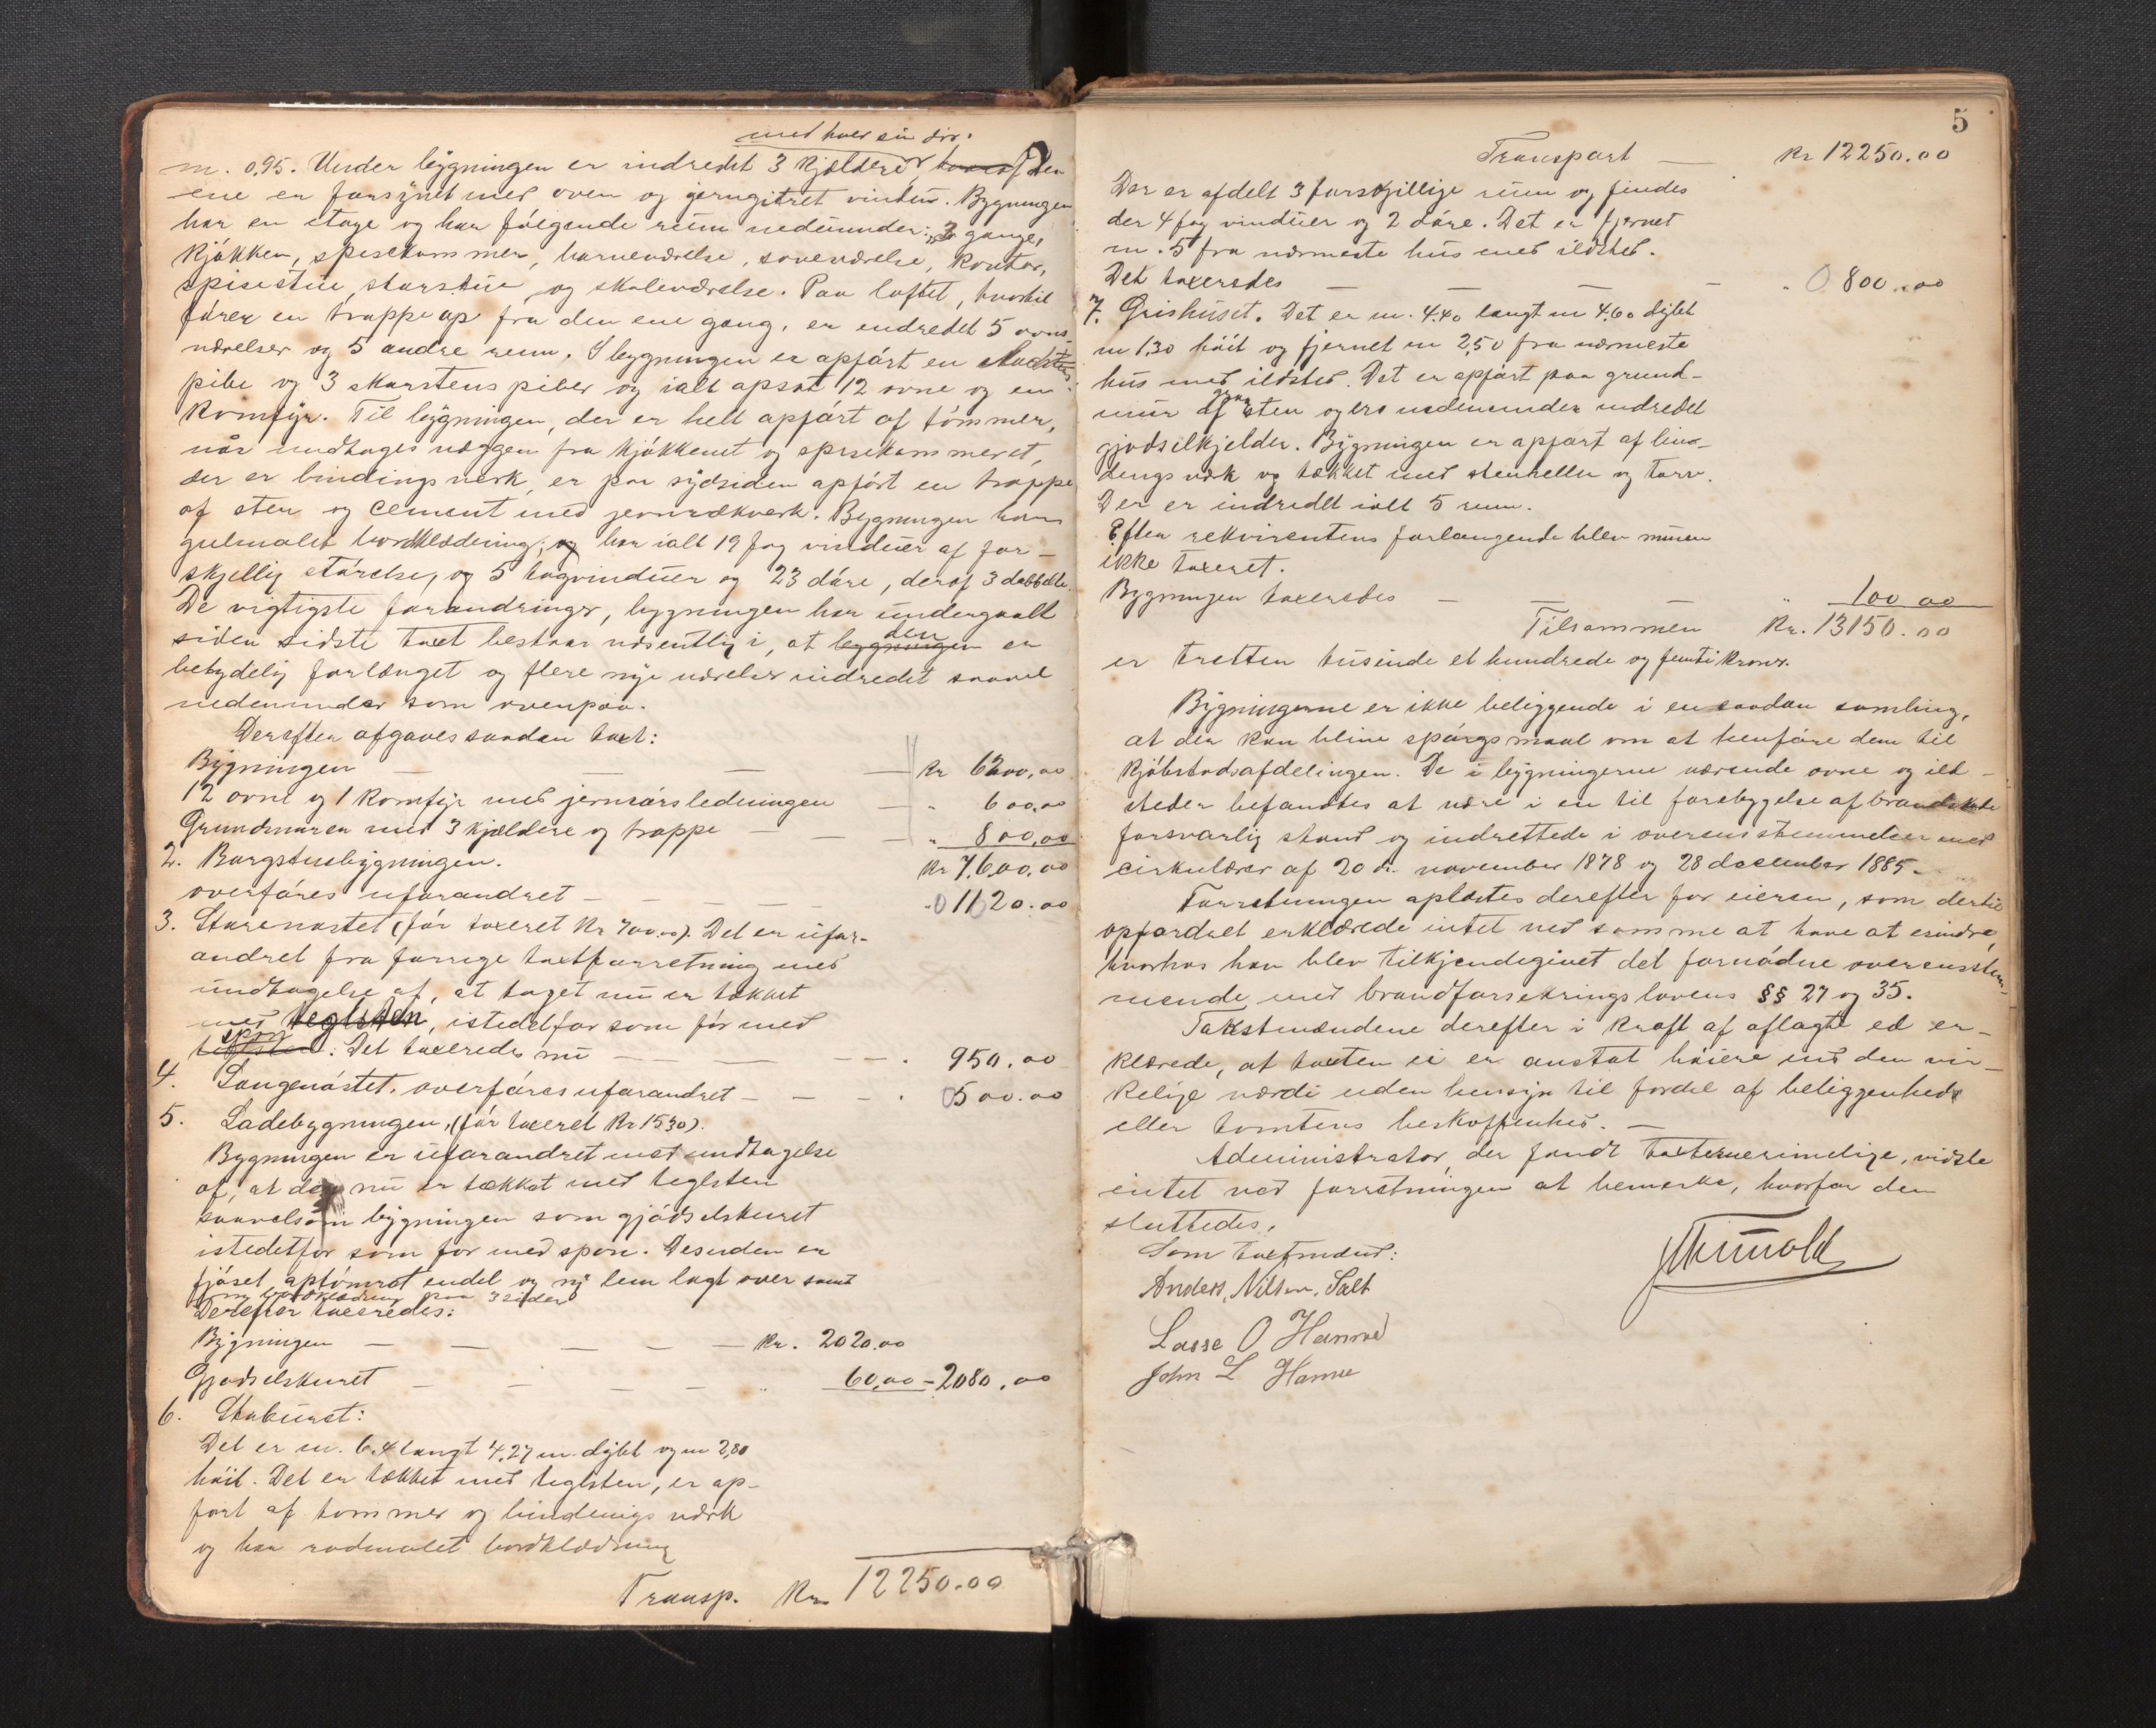 med hver sin dør.
m. 0,95. Under bygningen er indredet 3 kjældere, hvoraf den
ene er forsynet med oven og jerngitret vindue. Bygningen
har en etage og har følgende rum nedenunder: 3 gange,
kjøkken, spisekammer, barneværelse, soveværelse, kontor,
spisestue, storstue og skoleværelse. Paa loftet, hvortil
fører en trappe op fra den ene gang, er endredet 5 ovns-
værelser og 5 andre rum. I bygningen er opført en
pibe og 3 skorstenspiber og ialt opsat 12 ovne og en
komfyr. Til bygningen, der er helt opført af tømmer,
når undtages væggen fra kjøkkenet og spisekammeret,
der er bindingsværk, er paa sydsiden opført en trappe
af sten og cement med jernrækværk. Bygningen har
gulmalet bordklædning, og har ialt 19 fag vinduer af for-
skjellig størelse, og 5 tagvinduer og 23 døre, deraf 3 dobbelte.
De vigtigste forandringer, bygningen har undergaaet
siden sidste taxt bestaar væsentlig i, at bygningen den er
betydelig forlænget og flere nye værelser indredet saavel
nedenunder som ovenpaa.
Derefter afgaves saadan taxt:
Bygningen — — — — Kr 6200,00
12 ovne og 1 komfyr med jernrørsledningen — " 600,00
Grundmuren med 3 kjældere og trappe — — " 800,00
Kr 7600,00
2. Borgstuebygningen.
overføres uforandret — — — — 1120.00
3. Størenøstet (før taxeret Kr 700.00). Det er ufor-
andret fra forrige taxtforretning med
undtagelse af, at taget nu er tækket
med teglsten, istedetfor som før med
spon teglsten: Det taxeredes nu — — — — . 950.00
4. Langenøstet. overføres uforandret — — — . 500.00
5. Ladebygningen, (før taxeret Kr 1530).
Bygningen er uforandret med undtagelse
af, at den nu er tækket med teglsten
saavelsom bygningen som gjødselskuret
istedetfor som før med spon. Desuden er
fjøset optømret endel og ny lem lagt over samt
ny bordklædning paa 3 sider
Derefter taxeredes:
Bygningen — — — — — Kr. 2020.00
Gjødselskuret — — — — " 60,00 - 2080.00
6. Stabburet:
Det er m. 6.4 langt 4,27 m. dybt og m 2,80
høit. Det er tækket med teglsten, er op-
ført af tømmer og bindingsværk
og har rødmalet bordklædning
Transp. Kr. 12250.00
5
Transport — Kr 12250.00
Der er afdelt 3 forskjellige rum og findes
der 4 fag vinduer og 2 døre. Det er fjernet
m. 5 fra nærmeste hus med ildsted.
Det taxeredes — — — — " 800.00
7. Grishuset. Det er m. 4.40 langt m 4,60 dybt
m 1,30 høit og fjernet m 2,50 fra nærmeste
hus med ildsted. Det er opført paa grund-
mur af graa sten og er nedenunder indredet
gjødselkjelder. Bygningen er opført af bin-
dingsværk og tækket med stenheller og torv.
Der er indredet ialt 5 rum.
Efter rekvirentens forlangende blev muren
ikke taxeret.
Bygningen taxeredes — — — " 100 00
Tilsammen Kr. 13150.00
er tretten tusinde et hundrede og femti kroner.
Bygningerne er ikke beliggende i en saadan samling,
at der kan blive spørgsmaal om at henføre dem til
kjøbstadsafdelingen. De i bygningerne værende ovne og ild-
steder befandtes at være i en til forebyggelse af brandskade
forsvarlig stand og indrettede i overensstemmelse med
cirkulærer af 20 de november 1878 og 28 december 1885.
Forretningen oplæstes derefter for eieren, som dertil
opfordret erklærede intet ved samme at have at erindre,
hvorhos han blev tilkjendegivet det fornødne overensstem-
mende med brandforsikringslovens §§ 27 og 35.
Takstmændene derefter i kraft af aflagte ed er-
klærede, at taxten ei er ansat høiere end den vir-
kelige værdi uden hensyn til fordel af beliggenheds
eller tomtens beskaffenhed. —
Administrator, der fandt taxterne rimelige, vidste
intet ved forretningen at bemerke, hvorfor den
sluttedes.
Som taxtmænd:
Anders Nilsen Salt
Lasse O Hamre
John L Hamre